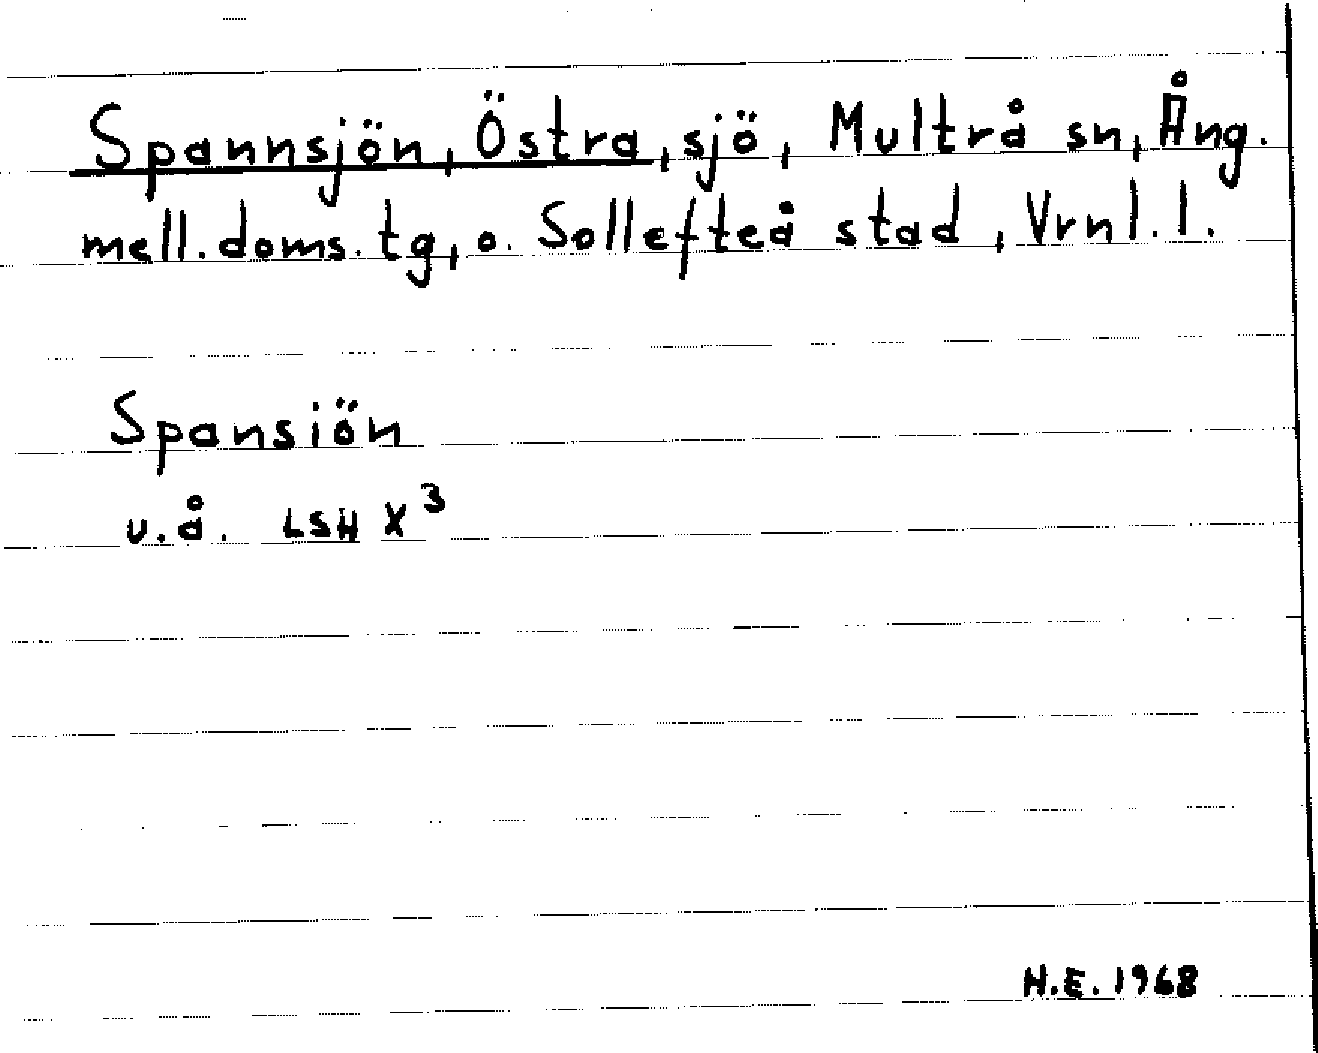 Spannsjön, Östra, sjö, Multrå sn, Ång.
mell. doms. tg, o. Sollefteå stad, Vrnl. l.
Spansiön
u.å. LSH X³
H.E. 1968